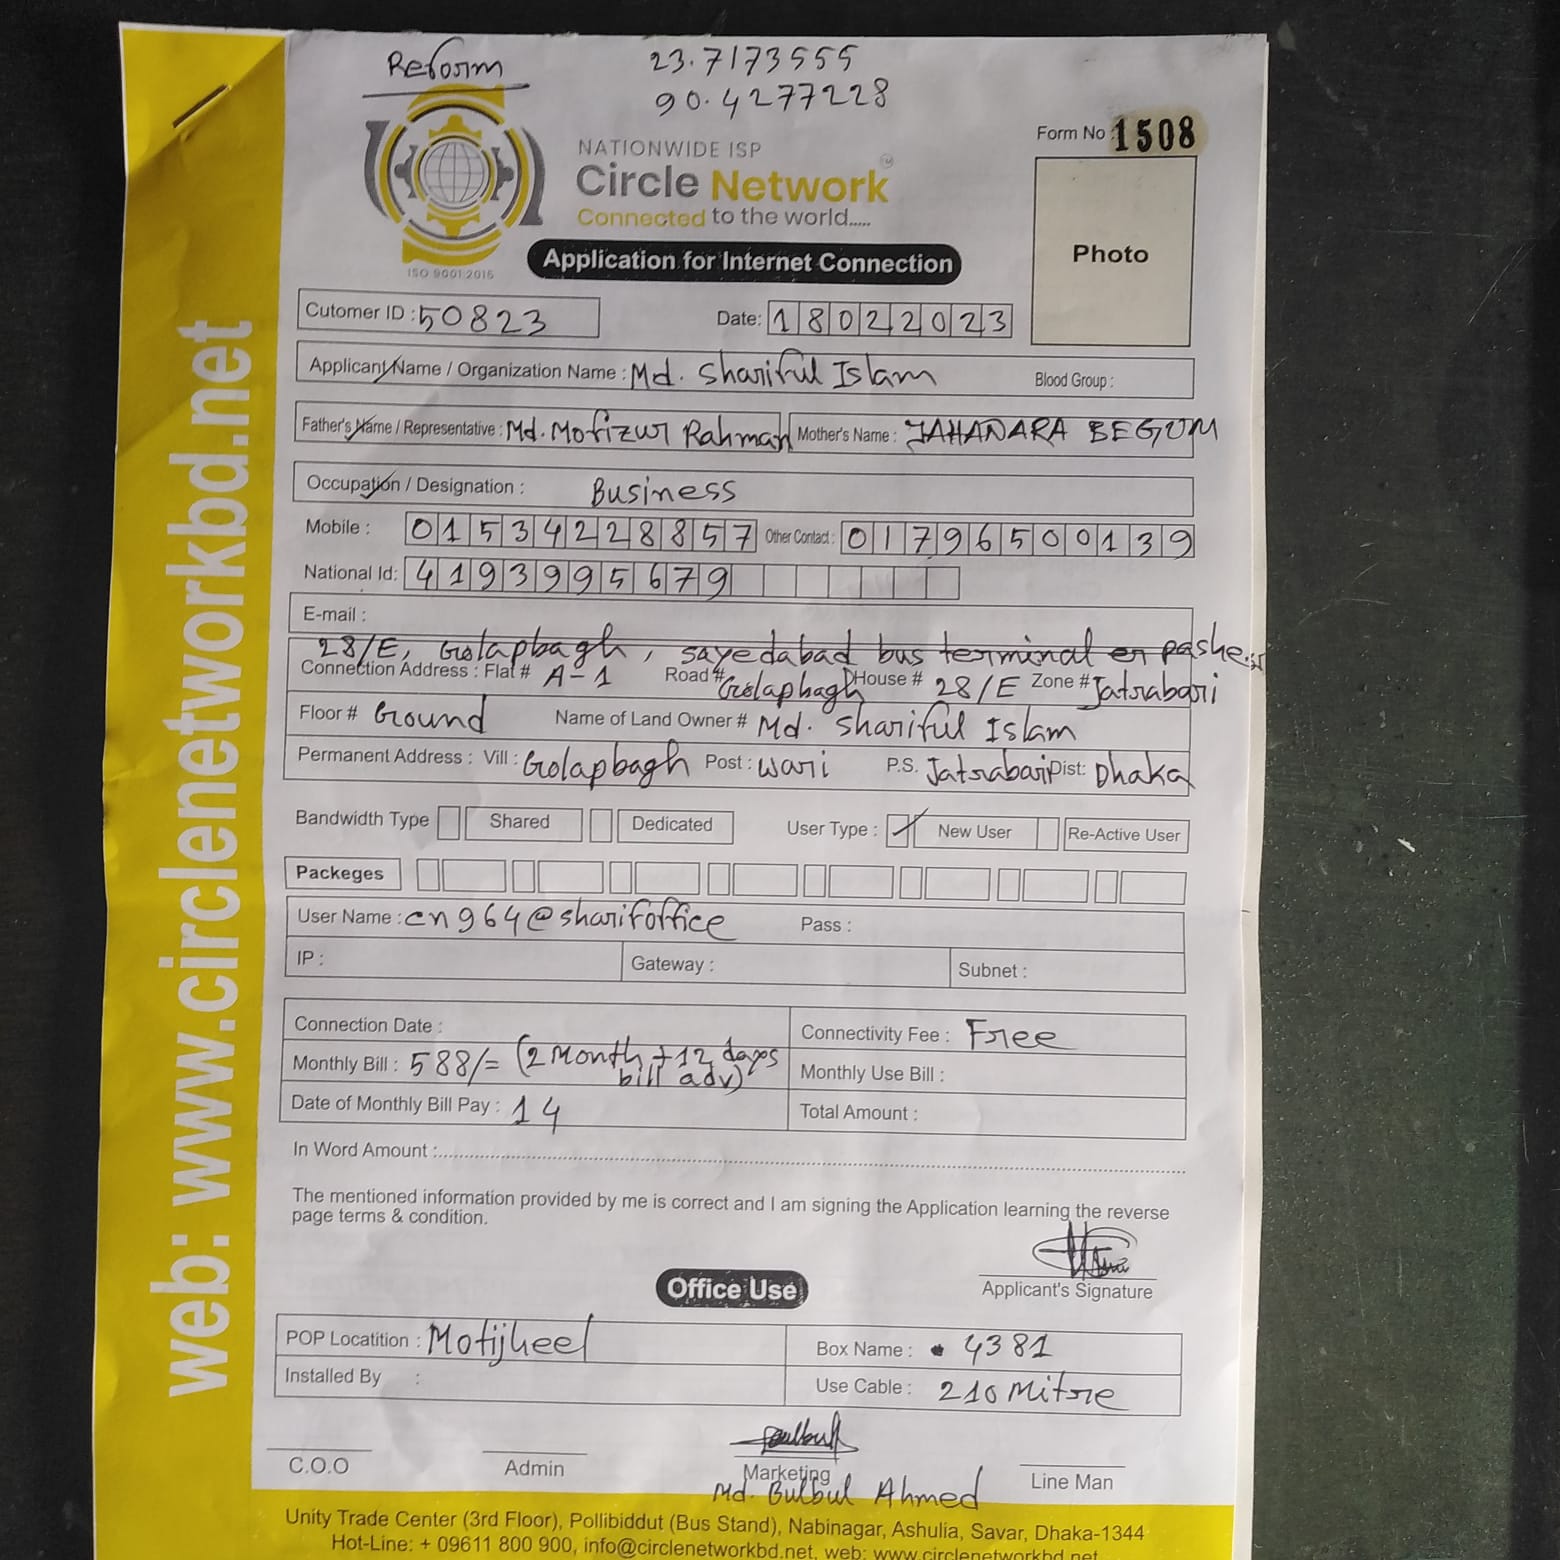 Reform
23.7173555
90.4277228
Form No : 1508
NATIONWIDE ISP
Circle Network TM
Connected to the world.....
ISO 9001:2015
Application for Internet Connection
Photo
Cutomer ID : 50823 Date: 18022023
Applicant Name / Organization Name : Md. Shariful Islam Blood Group :
Father's Name / Representative : Md. Mofizur Rahman Mother's Name : JAHANARA BEGUM
Occupation / Designation : Business
Mobile : 01534228857 Other Contact : 01796500139
National Id: 4193995679
E-mail :
28/E, Golapbagh, sayedabad bus terminal er pashe
Connection Address : Flat # A-1 Road # Golapbagh House # 28/E Zone # Jatrabari
Floor # Ground Name of Land Owner # Md. Shariful Islam
Permanent Address : Vill : Golapbagh Post : Wari P.S. Jatrabari Dist: Dhaka
Bandwidth Type Shared Dedicated User Type : New User Re-Active User
Packeges
User Name : cn964@sharifoffice Pass :
IP : Gateway : Subnet :
Connection Date : Connectivity Fee : Free
Monthly Bill : 588/= (2 Month + 12 days
bill adv) Monthly Use Bill :
Date of Monthly Bill Pay : 14 Total Amount :
In Word Amount :
The mentioned information provided by me is correct and I am signing the Application learning the reverse
page terms & condition.
Applicant's Signature
Office Use
POP Locatition : Motijheel Box Name : 4381
Installed By : Use Cable : 210 Mitre
Bulbul
C.O.O Admin Marketing Line Man
Md. Bulbul Ahmed
Unity Trade Center (3rd Floor), Pollibiddut (Bus Stand), Nabinagar, Ashulia, Savar, Dhaka-1344
Hot-Line: + 09611 800 900, info@circlenetworkbd.net, web: www.circlenetworkbd.net
web: www.circlenetworkbd.net